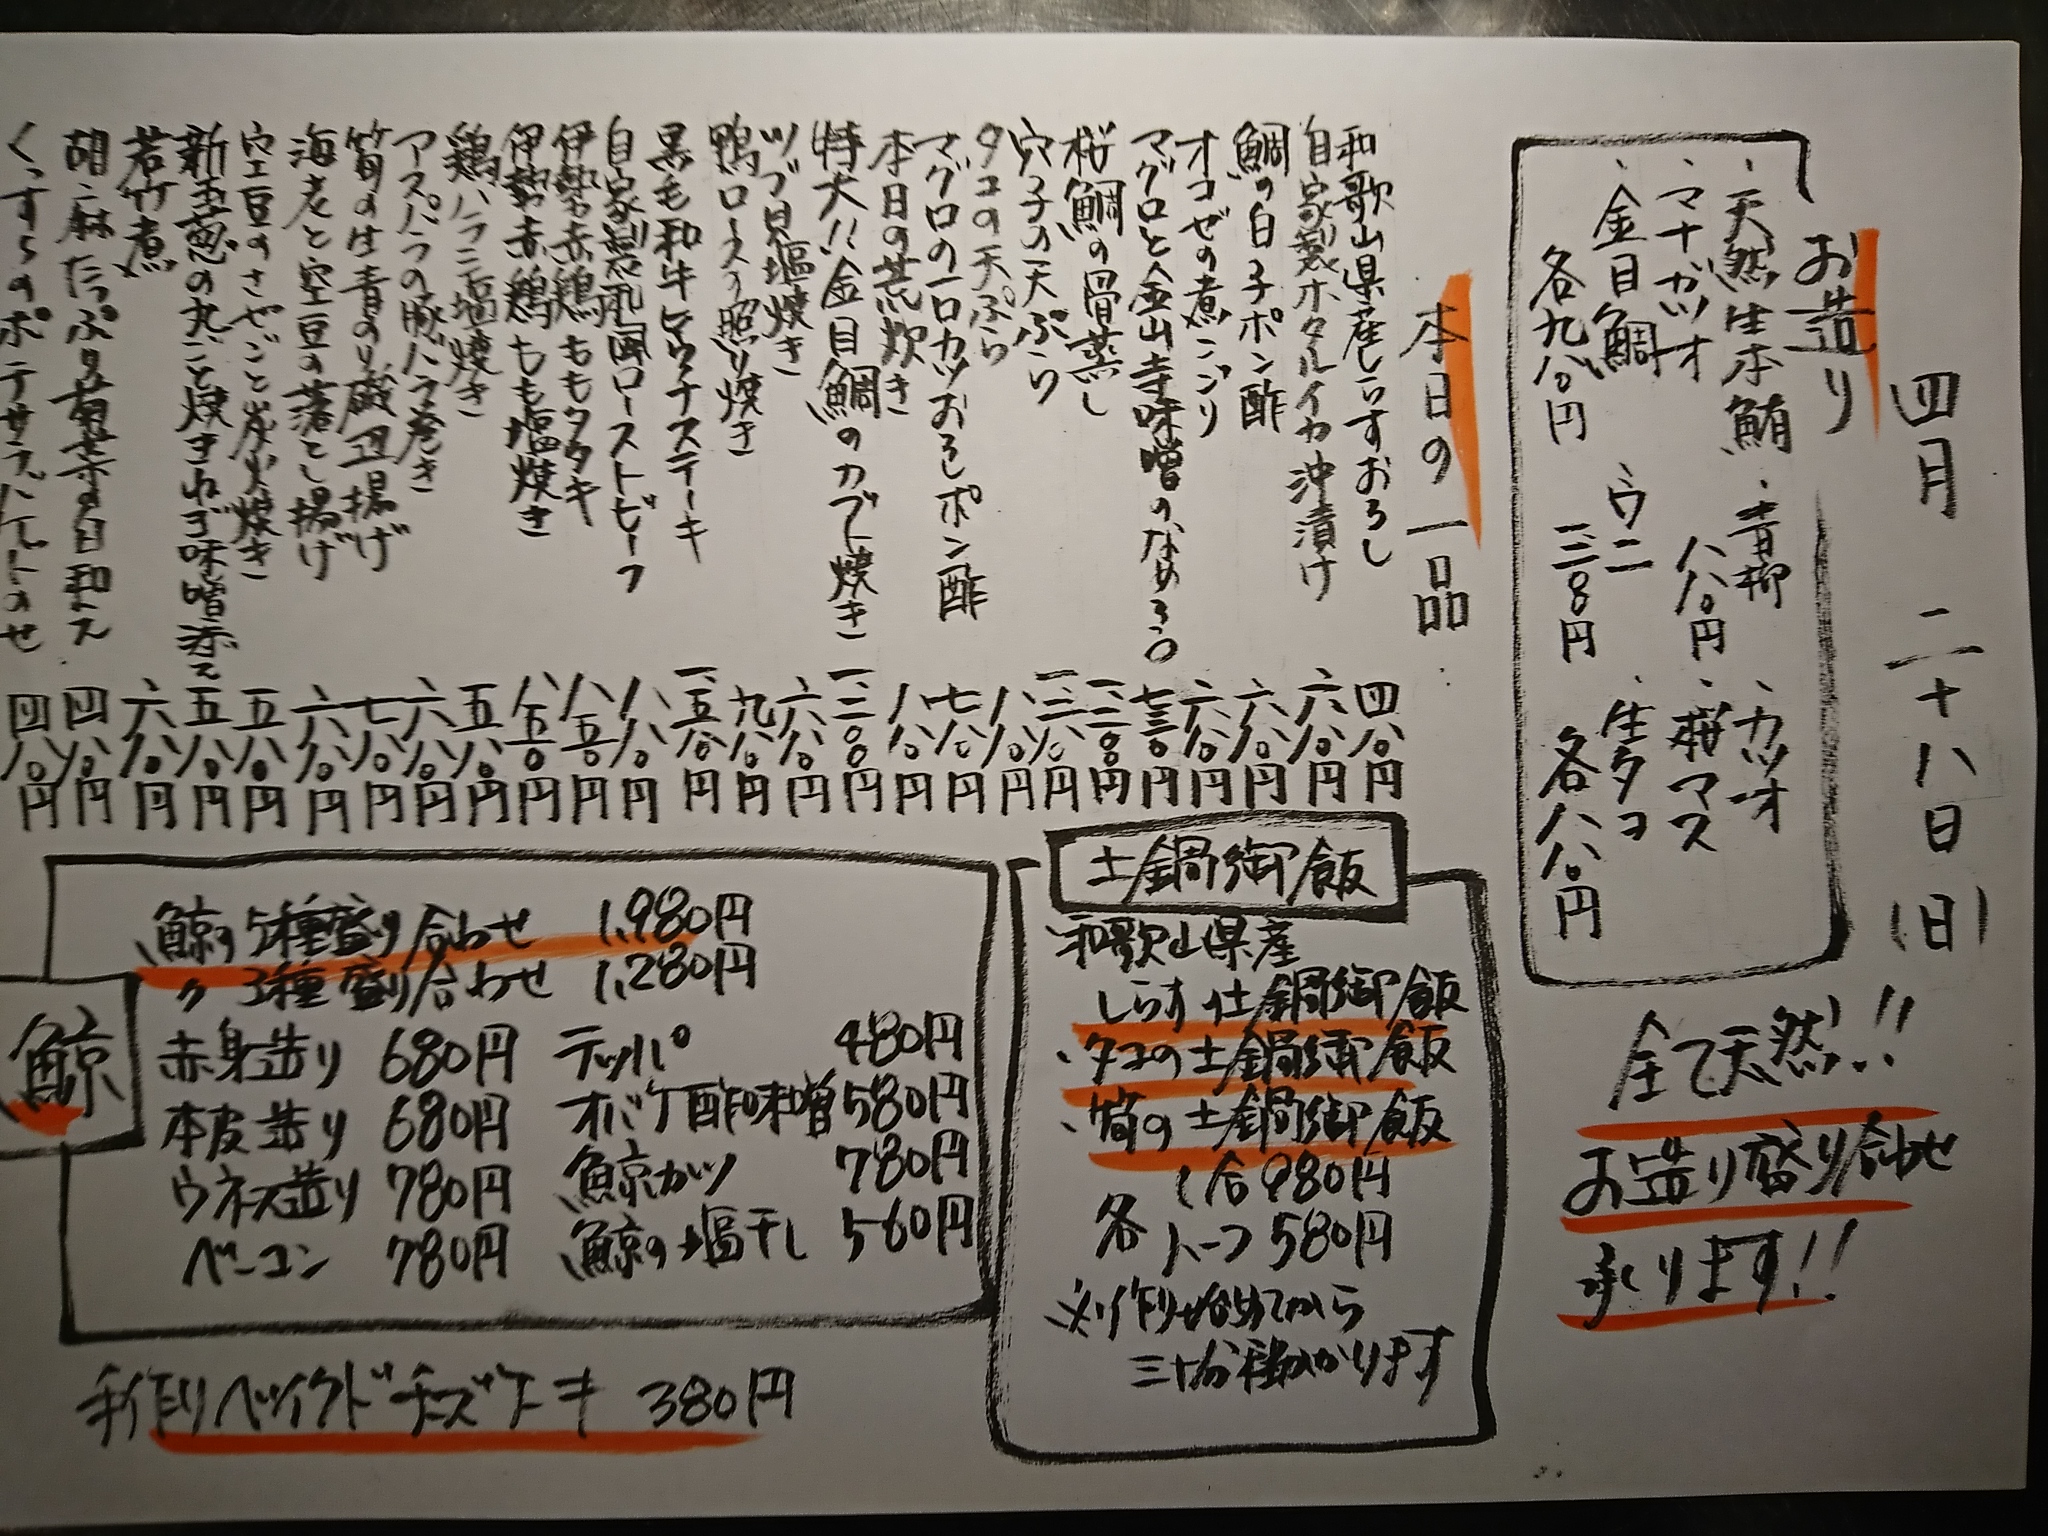 四月 二十八日 (日)
お造り
・天然生本鮪
・マナガツオ
・金目鯛
各九八〇円
・青柳
八八〇円
・ウニ
・カツオ
・桜マス
・生タコ
各八八〇円
全て天然!!
お造り盛り合わせ
承ります!!
本日の一品
和歌山県産しらすおろし 四八〇円
自家製ホタルイカ沖漬け 六八〇円
鯛の白子ポン酢 六八〇円
オコゼの煮こごり 六八〇円
マグロと金山寺味噌のなめろう 七三〇円
桜鯛の骨蒸し
穴子の天ぷら
タコの天ぷら 八八〇円
マグロの一口カツおろしポン酢 七八〇円
本日の荒炊き 八八〇円
特大!!金目鯛のカブト焼き
ツブ貝塩焼き 六八〇円
鴨ロース照り焼き 九八〇円
黒毛和牛ヒウチステーキ
自家製和風ローストビーフ 八八〇円
伊勢赤鶏ももタタキ 八五〇円
伊勢赤鶏もも塩焼き 八五〇円
鶏ハラミ塩焼き 五八〇円
アスパラの豚バラ巻き 六八〇円
筍の生青のり磯辺揚げ 七八〇円
海老と空豆の落とし揚げ 六八〇円
空豆のさやごと炭火焼き 五八〇円
新玉葱の丸ごと焼き ねぎ味噌添え 五八〇円
若竹煮 六八〇円
胡麻たっぷり菊菜の白和え 四八〇円
くっすらのポテサラ バゲットのせ 四八〇円
土鍋御飯
・和歌山県産
しらすの土鍋御飯
・タコの土鍋御飯
・筍の土鍋御飯
各 1合 980円
ハーフ 580円
※作り始めてから
三十分程かかります
鯨
鯨の5種盛り合わせ 1,980円
〃 3種盛り合わせ 1,280円
赤身造り 680円 テッパ 480円
本皮造り 680円 オバケ酢味噌 580円
ウネス造り 780円 鯨カツ 780円
ベーコン 780円 鯨の塩干し 560円
手作りベイクドチーズケーキ 380円